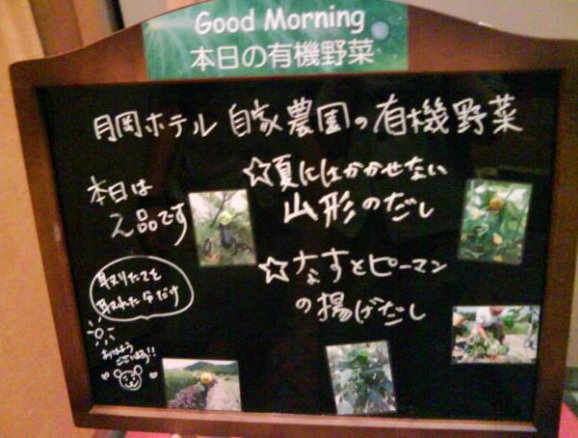 Good Morning
本日の有機野菜
月岡ホテル 自家農園の有機野菜
本日は
2品です
☆夏にはかかせない
山形のだし
☆なすとピーマン
の揚げだし
取りたてを
取れた分だけ
おはよう
ございます!!